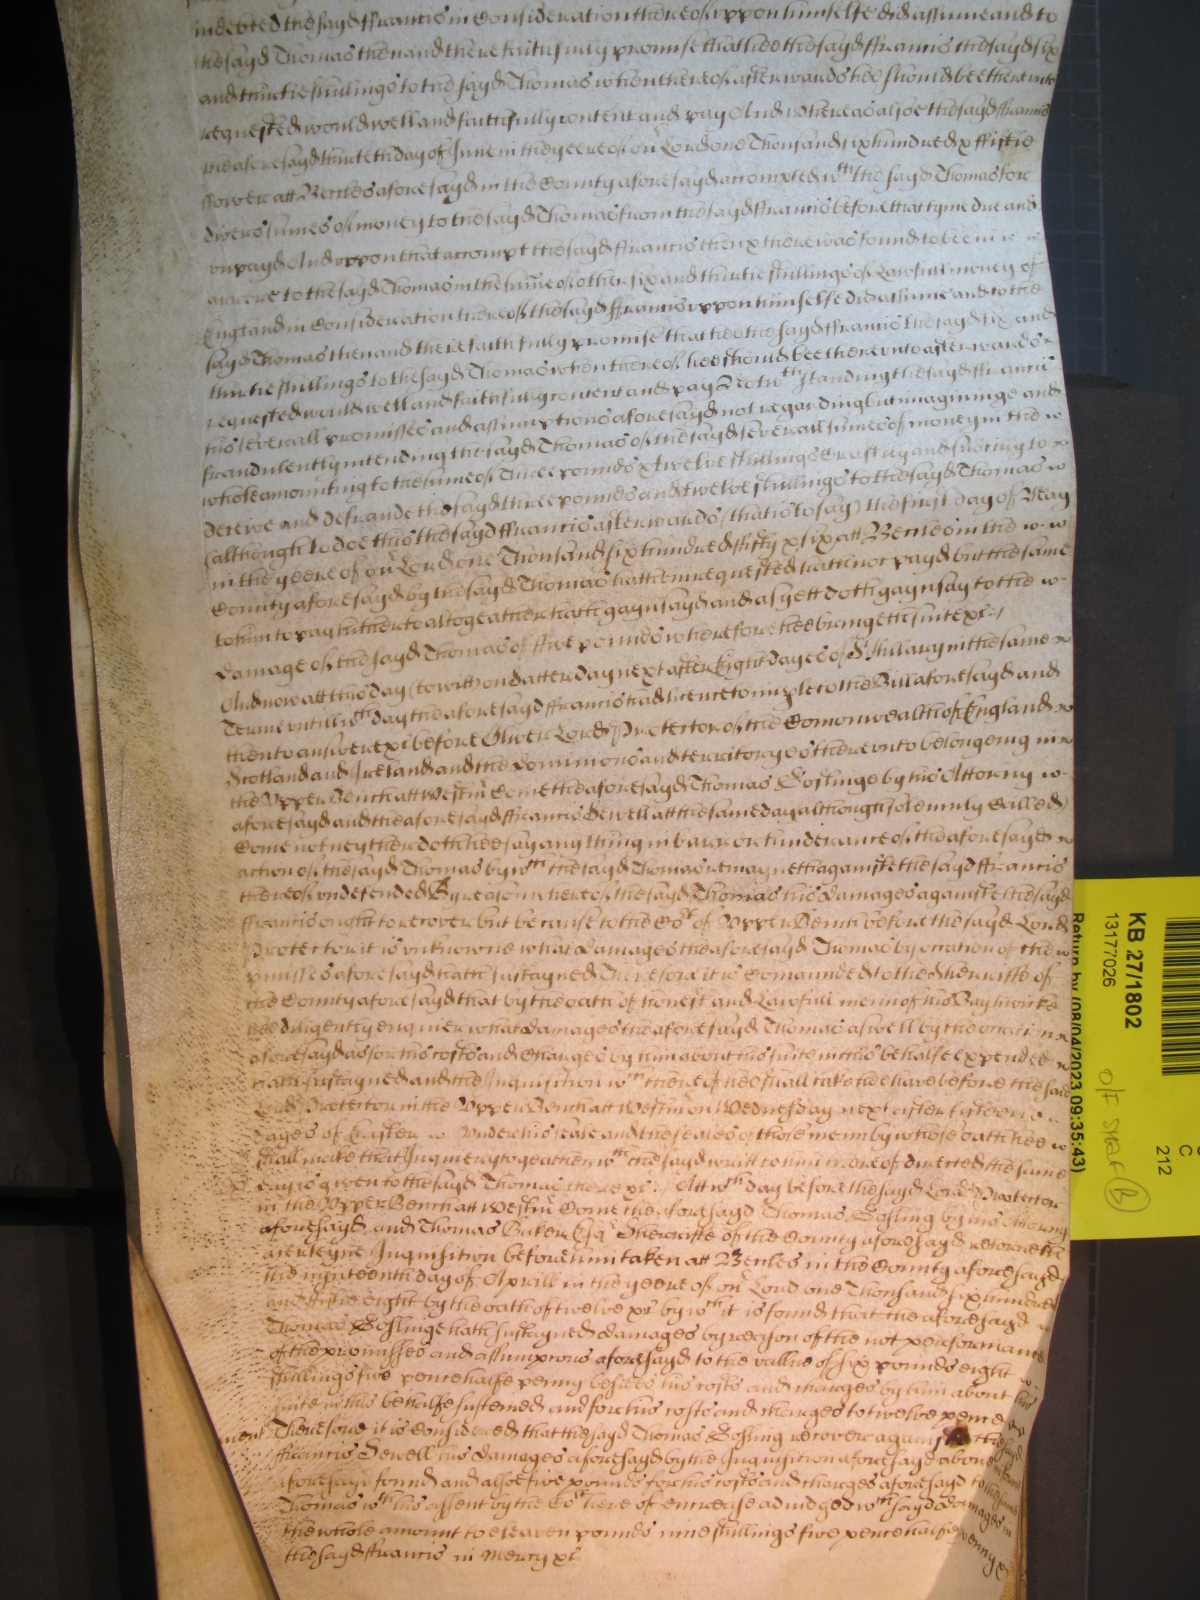 indebted the sayd ffrancis in Consideration thereof uppon himselfe did assume and to
the sayd Thomas then and there faithfully promise that hee the sayd ffrancis the sayd six
and thirtie shillings to the sayd Thomas when thereof afterwards hee should bee thereunto
requested would well and faithfully content and pay And whereas alsoe the sayd ffrancis
the aforesayd thirteth day of June in the yeere of our Lord one Thousand six hundred & ffiftie
ffower att Beccles aforesayd in the County aforesayd accompted wth the sayd Thomas for
divers sumes of money to the sayd Thomas from the sayd ffrancis before that tyme due and
unpayd And uppon that accompt the sayd ffrancis then & there was found to bee in
arrere to the sayd Thomas in the sume of other six and thirtie shillings of Lawfull money of
England in Consideration thereof the sayd ffrancis uppon himselfe did assume and to the
sayd Thomas then and there faithfully promise that hee the sayd ffrancis the sayd six and
thirtie shillings to the sayd Thomas when thereof hee should bee thereunto afterwards
requested would well and faithfully content and pay Notwthstanding the sayd ffrancis
his severall promisses and assumptions aforesayd not regarding but imagininge and
fraudulently intending the sayd Thomas of the sayd severall sumes of money in the
whole amounting to the sume of Three pounds & twelve shillings Craftily and
deceive and defraude the sayd three pounds and twelve shillings to the sayd Thomas
(although to doe this the sayd ffrancis afterwards (that is to say) the first day of May
in the yeere of our Lord one Thousand six hundred ffifty & six att Beccles in the
County aforesayd by the sayd Thomas hath bin requested hath not payd but the same
to him to pay hitherto altogeather hath gaynsayd and as yett doth gaynsay to the
damage of the sayd Thomas of ffive pounds wherefore hee bringeth suite &c
And now att this day (to witt) on Satterday next after Eight dayes of St Hillary in the same
Terme untill wch day the aforesayd ffrancis had licence to imple to the Bill aforesayd and
then to answere &c before Oliver Lord Protector of the Comonwealth of England
Scotland and Ireland and the Dominions and territoryes thereunto belonging in
the Upper Bench att Westmr Come the aforesayd Thomas Goslinge by his Attorny
aforesayd and the aforesayd ffrancis Sewell att the same day although solemnly Called
Come not neyther doth hee say any thing in barr or hinderance of the aforesayd
action of the sayd Thomas by wch the sayd Thomas remayneth against the sayd ffrancis
thereof undefended By reason whereof the sayd Thomas his Damages against the sayd
ffrancis ought to recover but because to the Cort of Upper Bench before the sayd Lord
Protector it is unknowne what damages the aforesayd Thomas by occation of the
pmisses aforesayd hath sustayned Therefore it is Comaunded to the Sherriffe of
the County aforesayd that by the oath of honest and Lawfull menn of his Baylwicke
hee diligently enquier what damages the aforesayd Thomas aswell by the occation
aforesayd as for his costs and Charges by him about his suite in this behalfe expended
hath sustayned and the Inquisition wch thereof hee shall take hee have before the said
Lord Protector in the Upper Bench att Westmr on Wednesday next after fifteen
dayes of Easter under his seale and the seales of those menn by whose oath hee
shall make that Inquiery togeather wth the sayd writt to him thereof directed the same
day is given to the sayd Thomas there &c Att wch day before the sayd Lord Protector
in the Upper Bench att Westmr Come the aforesayd Thomas Gosling by his Attorny
aforesayd and Thomas Baker Esqr Sherriffe of the County aforesayd retorneth
a certeyne Inquisition before him taken att Beccles in the County aforesayd
the nynteenth day of Aprill in the yeere of our Lord one Thousand six hundred
and ffiftie eight by the oath of twelve &c by wch it is found that the aforesayd
Thomas Goslinge hath sustayned damages by reason of the not performance
of the promisses and assumptions aforesayd to the vallue of six pounds eight
shillings five pence halfe penny besides his costs and charges by him about his
suite in this behalfe susteined and for his costs and charges to twelve pence
Therefore it is Considered that the sayd Thomas Gosling recover against the sayd
ffrancis Sewell his damages aforesayd by the Inquisition aforesayd above
aforesayd found and alsoe five pounds for his costs and charges aforesayd to the sayd
Thomas wth his assent by the Cort here of encrease adiudged wch sayd damages in
the whole amount to eleaven pounds nine shillings five pence halfe penny &
the sayd ffrancis in Mercy &c
KB 27/1802
13177026
Return by (08/04/2023 09:35:43)
C
212